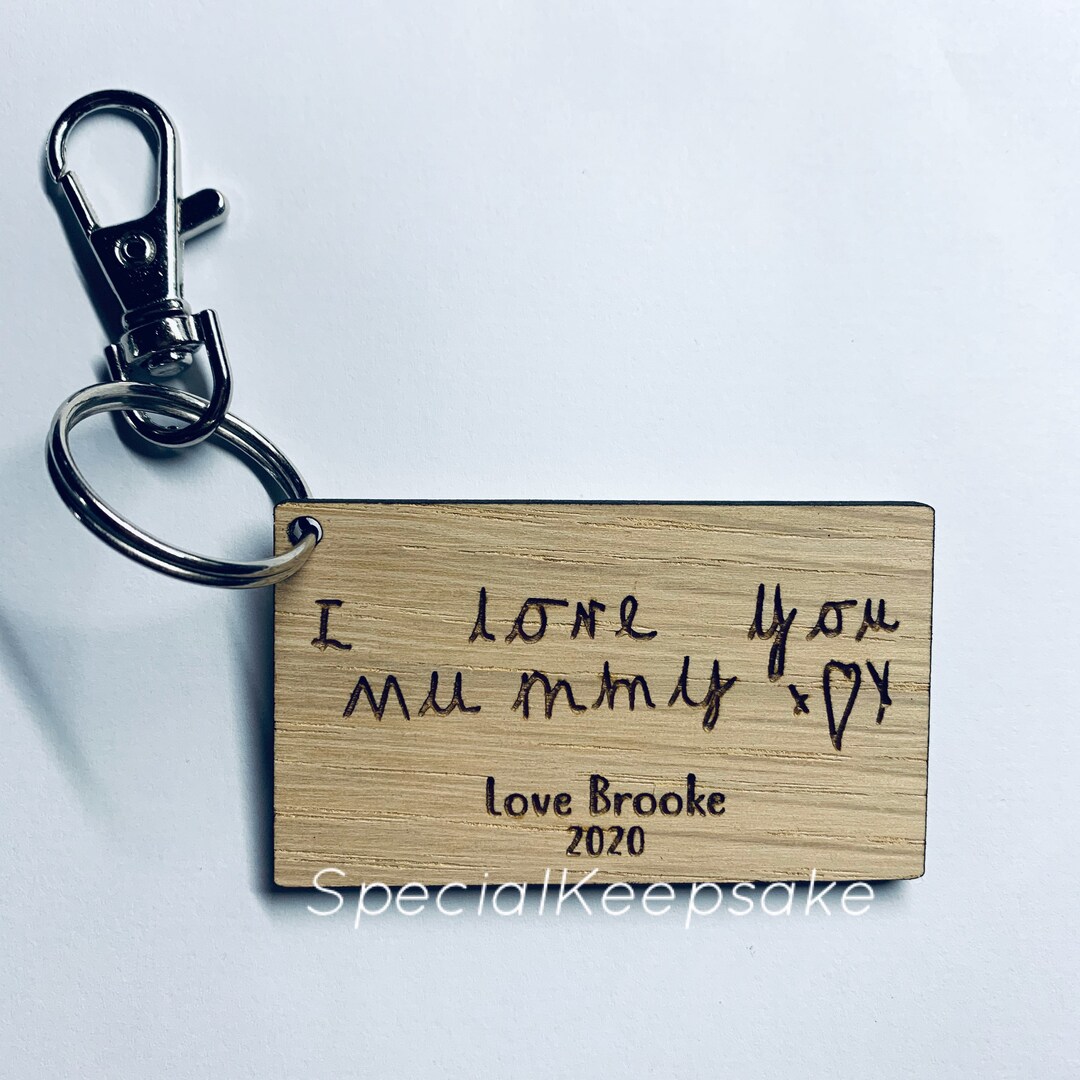 I love you
mummy x♡x
Love Brooke
2020
SpecialKeepsake